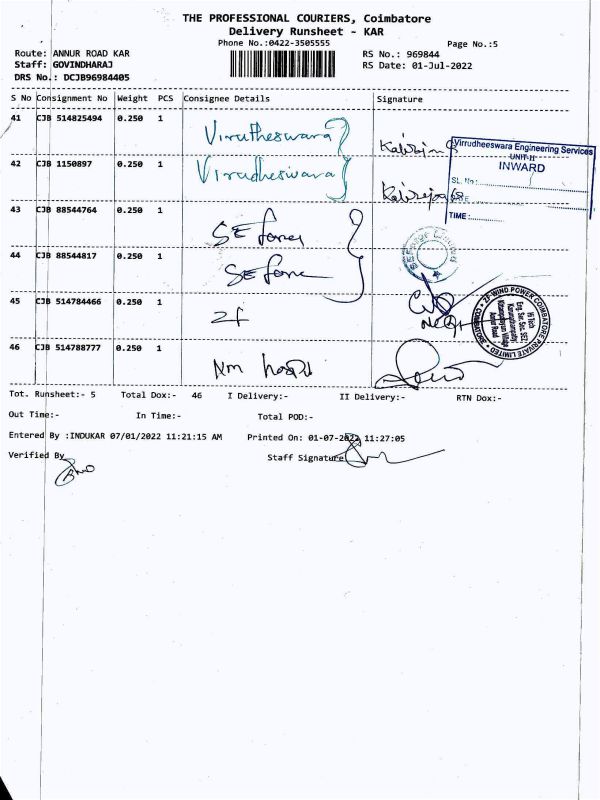 THE PROFESSIONAL COURIERS, Coimbatore
Delivery Runsheet - KAR
Phone No.:0422-3505555
Page No.:5
Route: ANNUR ROAD KAR
RS No.: 969844
Staff: GOVINDHARAJ
RS Date: 01-Jul-2022
DRS No.: DCJB96984405
S No Consignment No Weight PCS Consignee Details Signature
41 CJB 514825494 0.250 1 Virrutheswara
42 CJB 1150897 0.250 1 Virrudheswara
Virrudheeswara Engineering Services
UNIT-II
INWARD
SL. No:
TIME :
43 CJB 88544764 0.250 1 SE
44 CJB 88544817 0.250 1 SE
45 CJB 514784466 0.250 1 ZF
ZF WIND POWER COIMBATORE PRIVATE LIMITED
46 CJB 514788777 0.250 1 Nm
Tot. Runsheet:- 5 Total Dox:- 46 I Delivery:- II Delivery:- RTN Dox:-
Out Time:- In Time:- Total POD:-
Entered By :INDUKAR 07/01/2022 11:21:15 AM Printed On: 01-07-2022 11:27:05
Verified By
Staff Signature